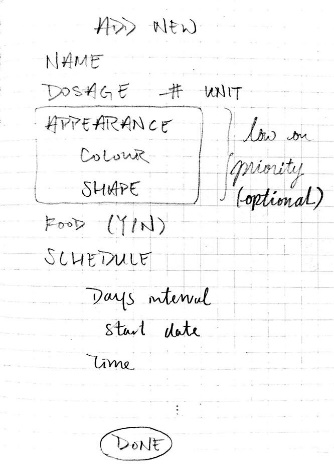 ADD NEW
NAME
DOSAGE -# UNIT
APPEARANCE
COLOUR
SHAPE
low on
priority
(optional)
FOOD (Y/N)
SCHEDULE
Days interval
start date
Time
⋮
DONE